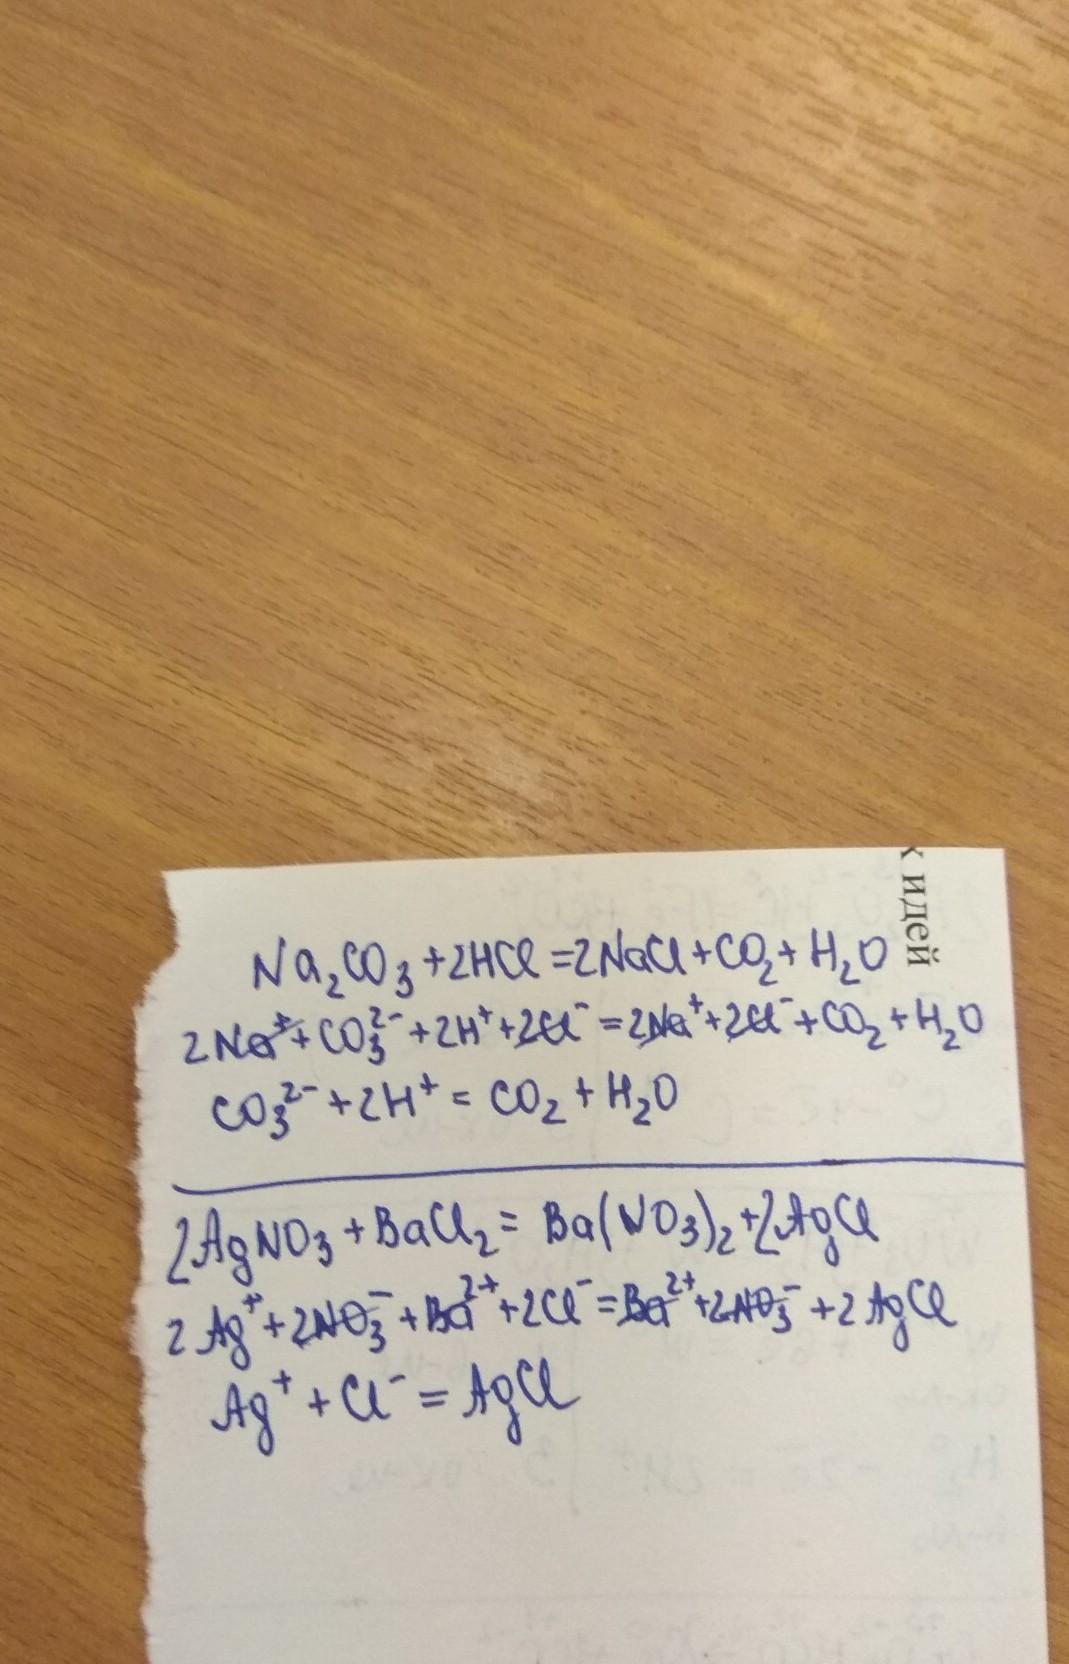 к идей
Na₂CO₃+2HCl=2NaCl+CO₂+H₂O
2Na⁺+CO₃²⁻+2H⁺+2Cl⁻=2Na⁺+2Cl⁻+CO₂+H₂O
CO₃²⁻+2H⁺=CO₂+H₂O
2AgNO₃+BaCl₂=Ba(NO₃)₂+2AgCl
2Ag⁺+2NO₃⁻+Ba²⁺+2Cl⁻=Ba²⁺+2NO₃⁻+2AgCl
Ag⁺+Cl⁻=AgCl